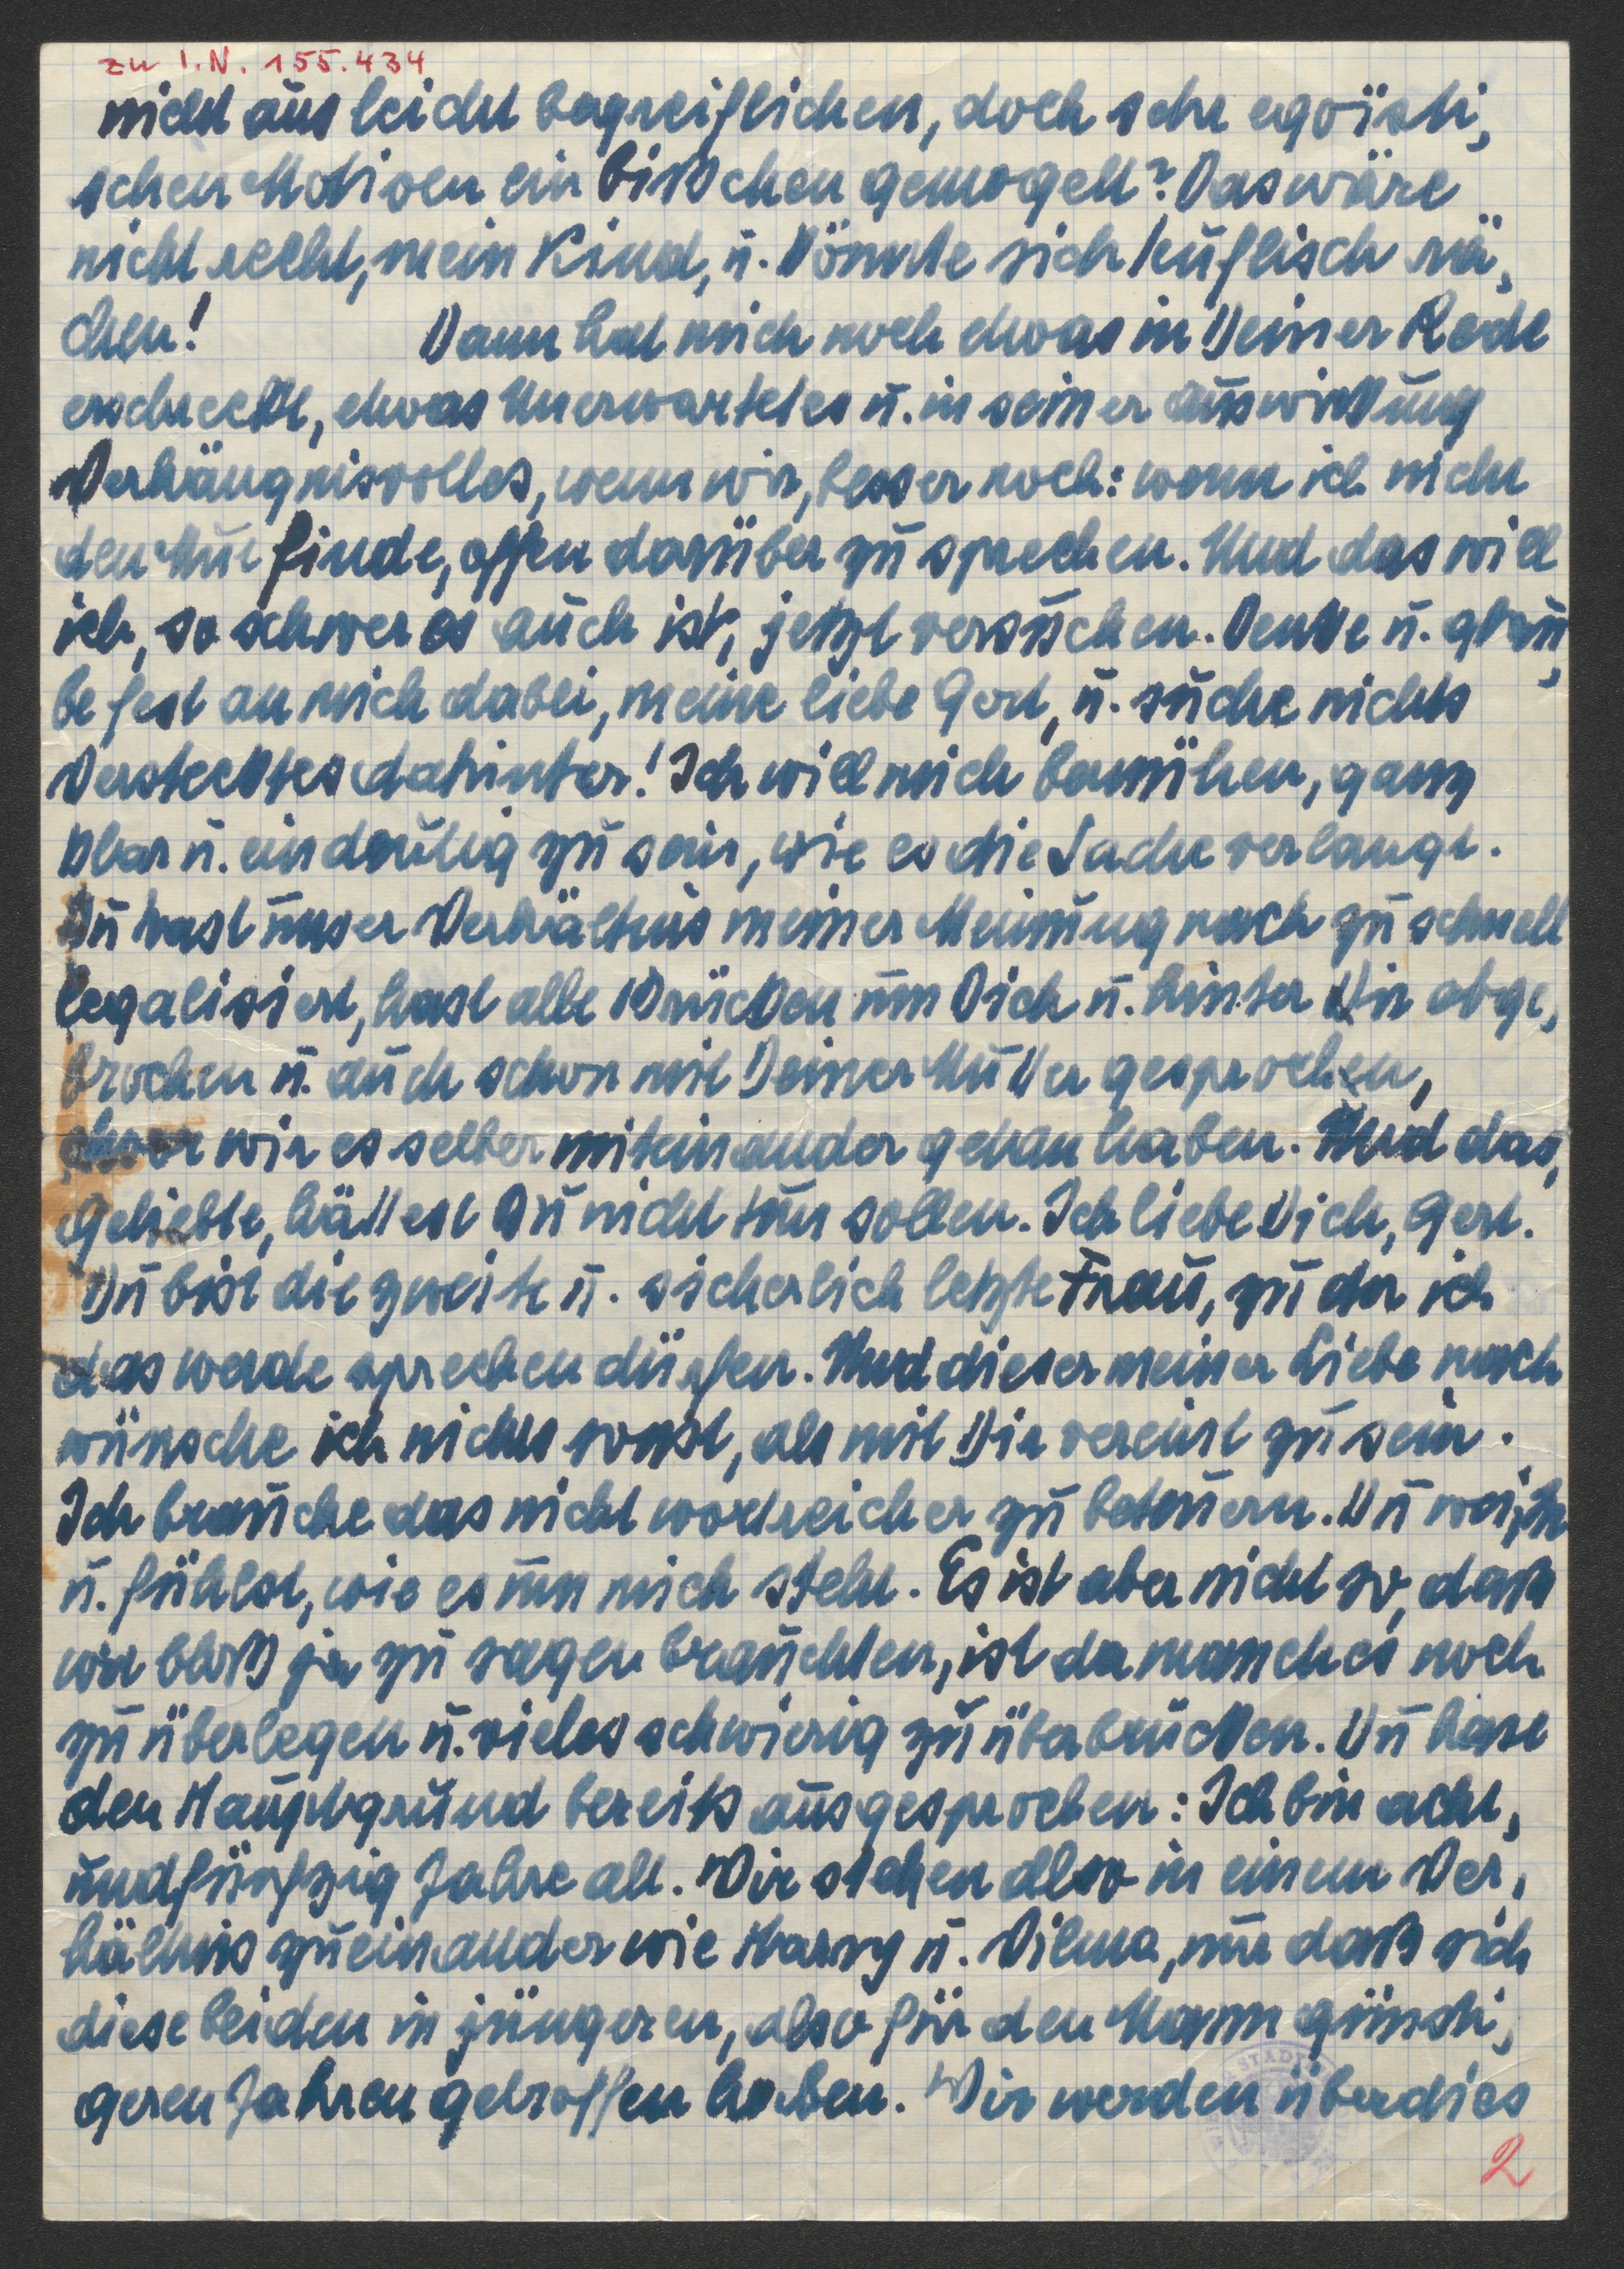 zu I.N. 155.434
nicht aus leicht begreiflichen, doch sehr egoïsti,
schen Motiven ein bißchen gemogelt? Das wäre
nicht recht, mein Kind, u. könnte sich teuflisch rä,
chen! Dann hat mich noch etwas in Deiner Rede
erschreckt, etwas Unerwartetes u. in seiner Auswirkung
Verhängnisvolles, wenn wir, besser noch: wenn ich nicht
den Mut finde, offen darüber zu sprechen. Und das will
ich, so schwer es auch ist, jetzt versuchen. Denke u. glau,
be fest an mich dabei, meine liebe Gerl, u. suche nichts
Verstecktes dahinter! Ich will mich bemühen, ganz
klar u. eindeutig zu sein, wie es die Sache verlangt.
Du hast unser Verhältnis meiner Meinung nach zu schnell
legalisiert, hast alle Brücken um Dich u. hinter Dir abge,
brochen u. auch schon mit Deiner Mutter gesprochen,
bevor wir es selber miteinander getan haben. Und das,
Geliebte, hättest Du nicht tun sollen. Ich liebe Dich, Gerl.
Du bist die zweite u. sicherlich letzte Frau, zu der ich
das werde sprechen dürfen. Und dieser meiner Liebe nach
wünsche ich nichts sonst, als mit Dir vereint zu sein.
Ich brauche das nicht wortreicher zu beteuern. Du weißt
u. fühlst, wie es um mich steht. Es ist aber nicht so, daß
wir bloß ja zu sagen brauchten, ist da manches noch
zu überlegen u. vieles schwierig zu überbrücken. Du hast
den Hauptgrund bereits ausgesprochen: Ich bin acht,
undfünfzig Jahre alt. Wir stehen also in einem Ver,
hältnis zueinander wie Harry u. Vilma, nur daß sich
diese beiden in jüngeren, also für den Mann günsti,
geren Jahren getroffen haben. Wir werden überdies
2